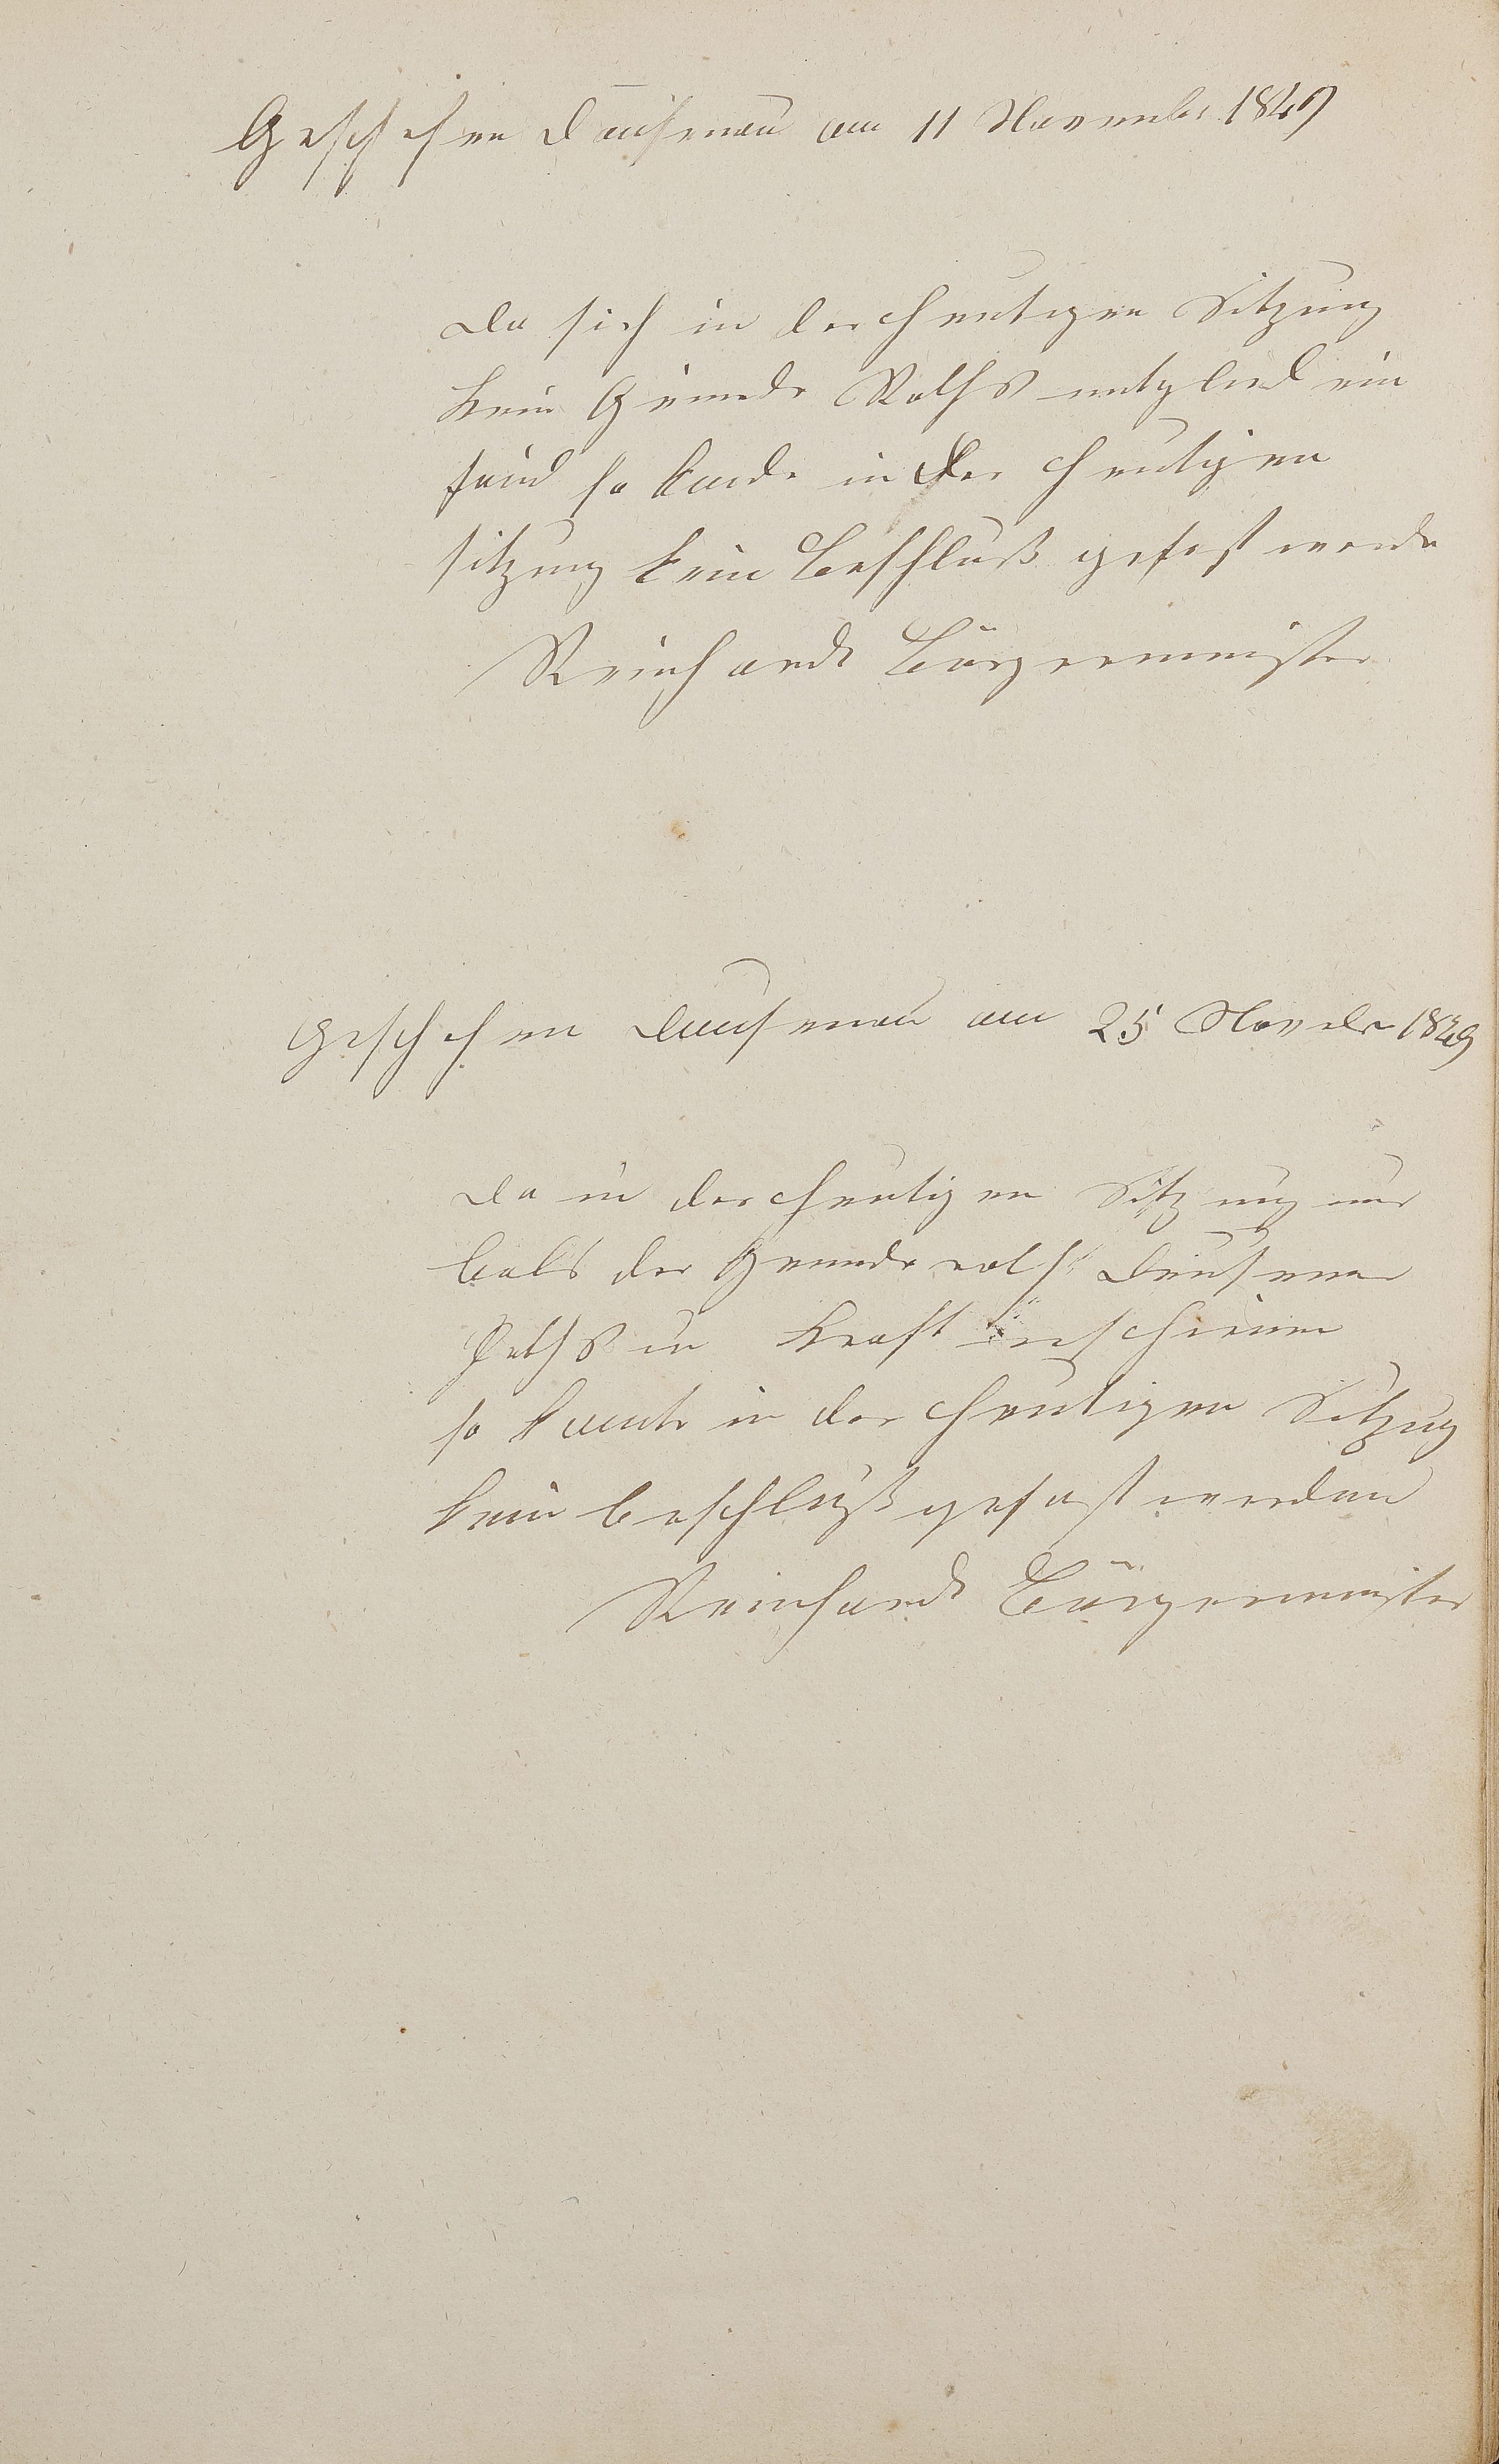 Geschehen Dausenau am 11 November 1849
Da sich in der heutigen Sitzung
kein Gemeinde Raths mitglied ein
fand so konde in der heutigen
sitzung kein Beschluß gefast werde
Reinhardt Bürgermeister
Geschehen Dausenau am 25 November 1849
Da in der heutigen Sitzung nur
der Gemeinderath
Kraft erschienen
so konnte in der heutigen Sitzung
kein beschluß gefast werden
Reinhardt Bürgermeister